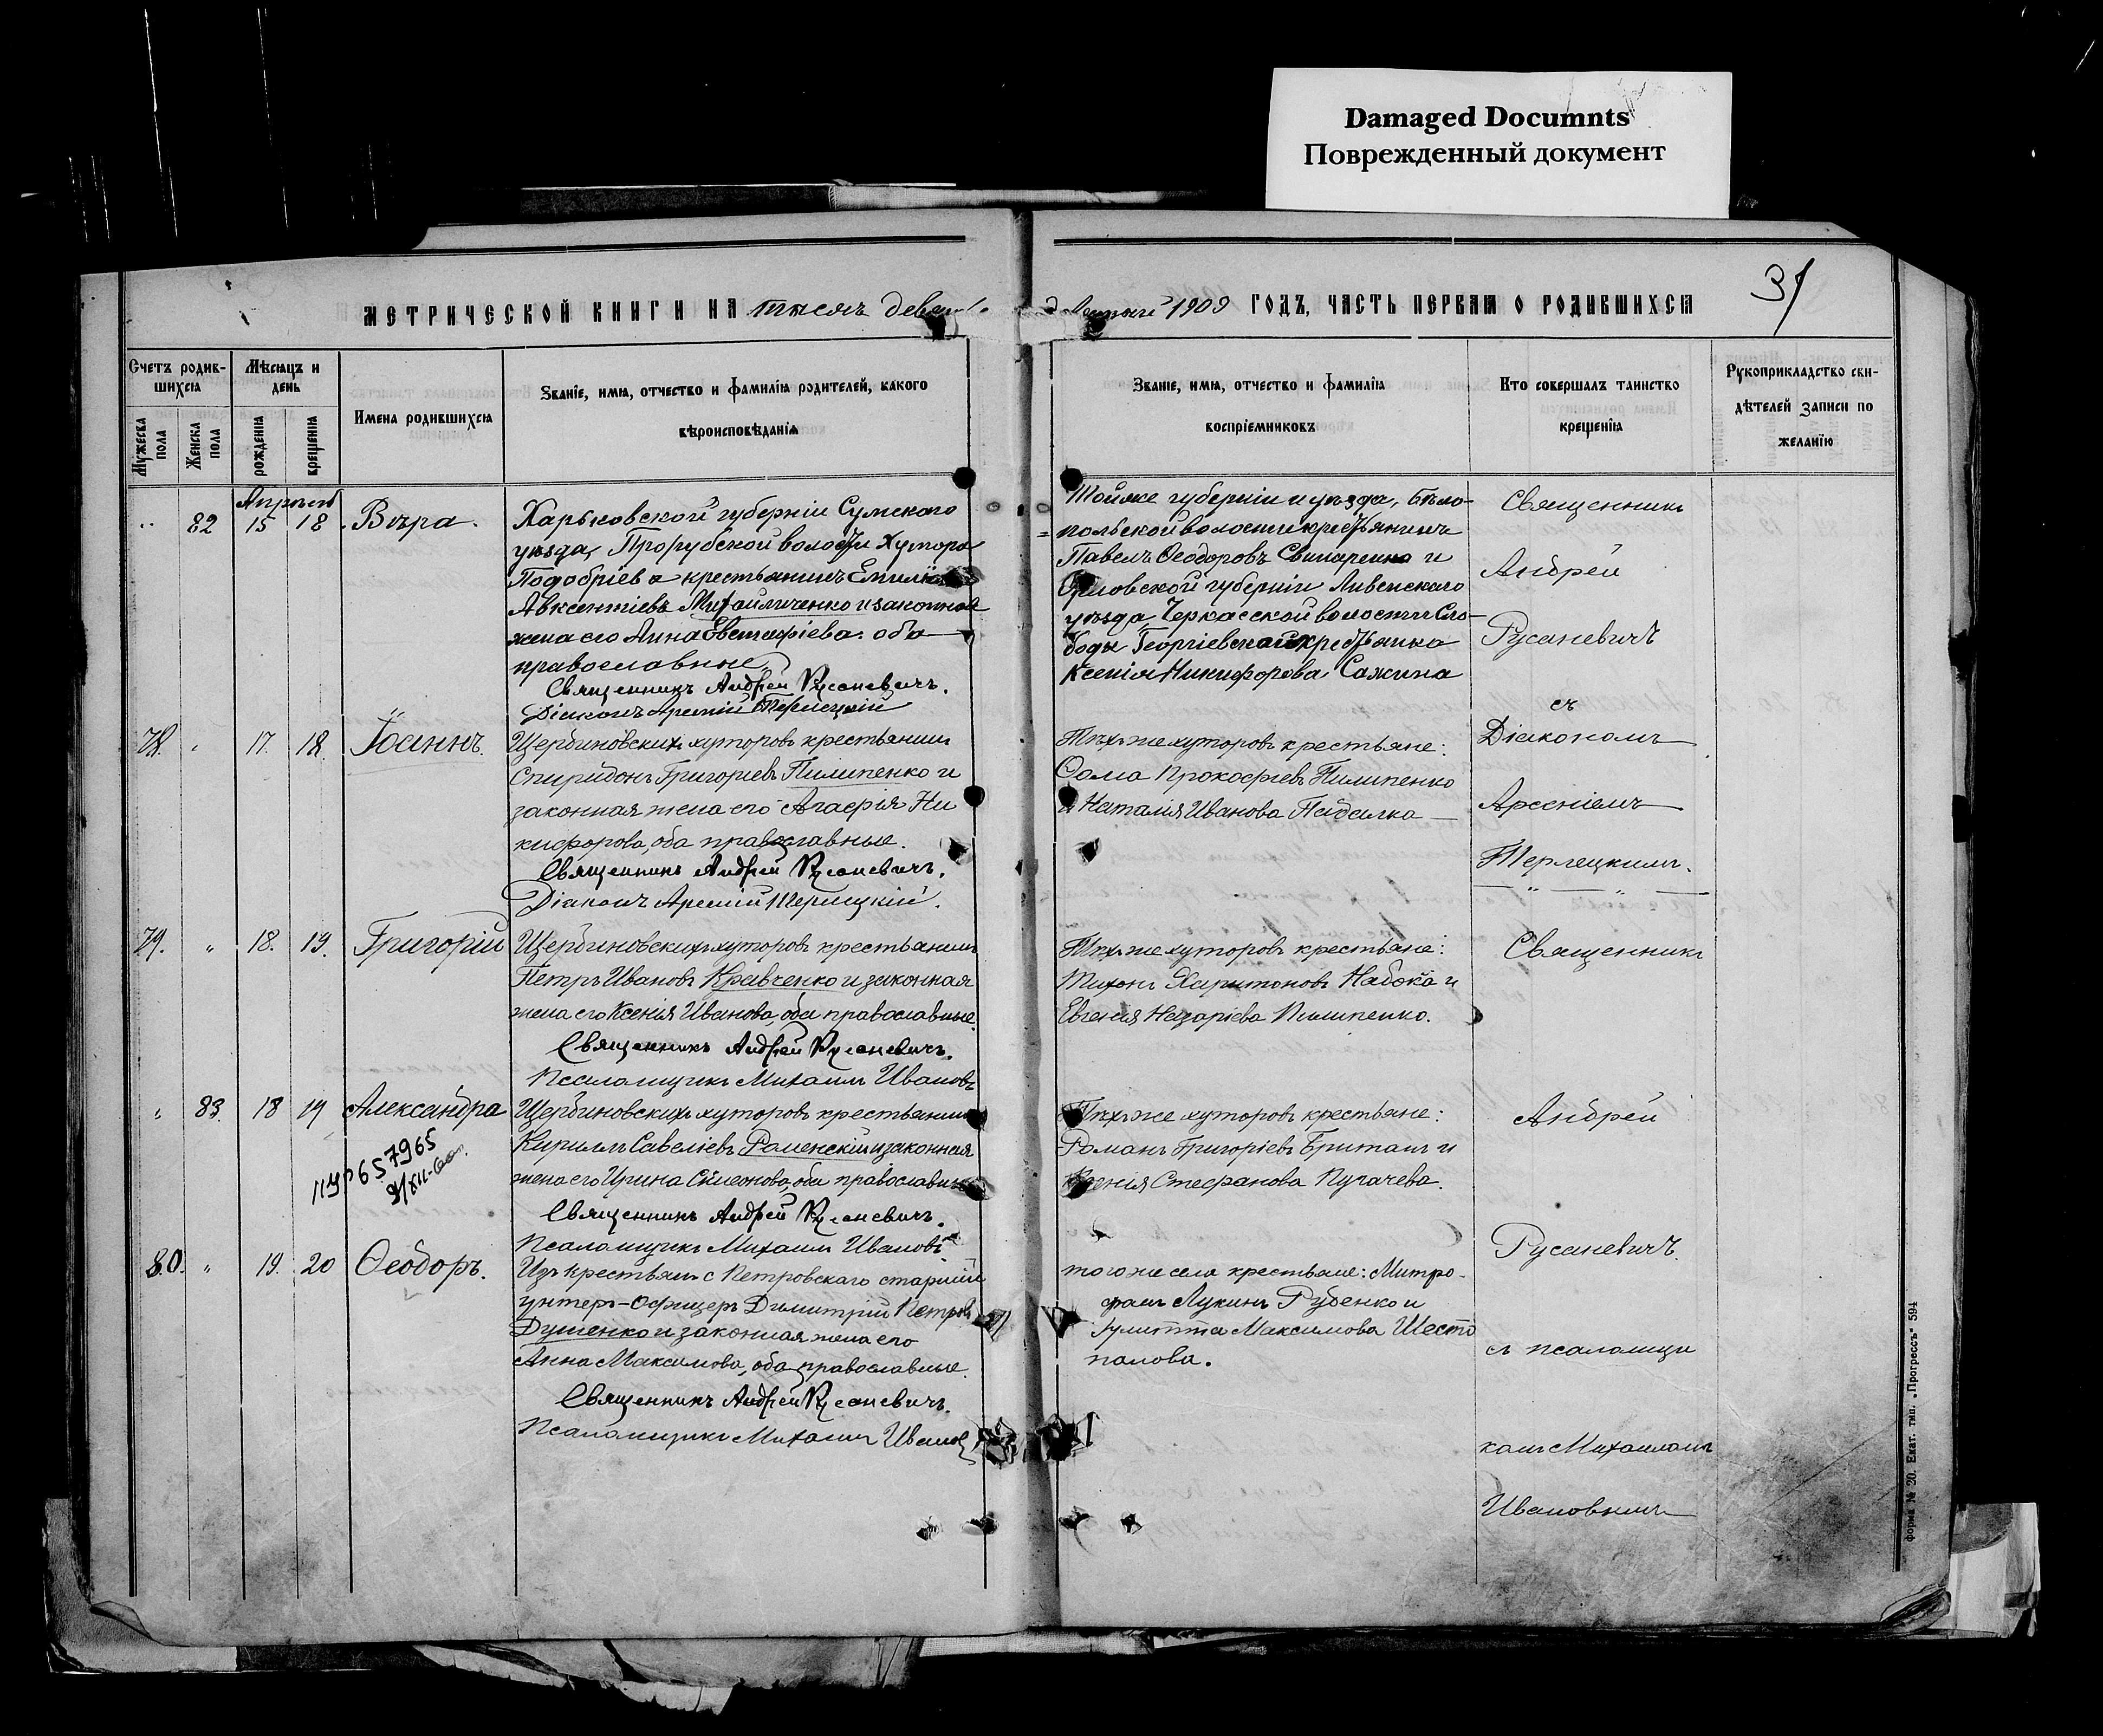 Damaged Documnts
Поврежденный документ
МЕТРИЧЕСКОЙ КНИГИ НА тысяч девят
1909 ГОДЪ, ЧАСТЬ ПЕРВАЯ О РОДИВШИХСЯ
Счетъ родив-
шихся
Мужеска пола
Женска пола
Мѣсяцъ и
день
рожденія
крещенія
Имена родившихся
Званіе, имя, отчество и фамилія родителей, какого
вѣроисповѣданія
Званіе, имя, отчество и фамилія
воспріемниковъ
Кто совершалъ таинство
крещенія
Рукоприкладство сви-
дѣтелей записи по
желанію
82 15 18 Вѣра.
Харьковской губерніи Сумского
уѣзда, волости Хутора
крестьянинъ
Авксентіевъ Михайличенко и законная
жена его Анна Евстафіева. оба
православные
Священникъ Андрей Русаневичъ.
Діаконъ Арсеній Терлецкій
Тойже губерніи и уѣзда, Бѣло-
польской волости крестьянинъ
Павелъ Ѳеодоровъ Свинаренко и
Орловской губерніи Ливенскаго
уѣзда, Черкасской волости Сло-
боды Георгіевской крестьянка
Ксенія Никифорова Сажина
78. 17. 18. Іоаннъ.
Щербиновскихъ хуторовъ крестьянинъ
Спиридонъ Григоріевъ Пилипенко и
законная жена его Агафія Ни
кифорова, оба православные.
Священникъ Андрей Русаневичъ.
Діаконъ Арсеній Терлецкій.
Тѣхъ же хуторовъ крестьяне:
Ѳома Прокофіевъ Пилипенко
и Наталія Иванова
Священникъ
Андрей
Русаневичъ
съ
Діакономъ
Арсеніемъ
Терлецкимъ.
79. " 18. 19. Григорій
Щербиновскихъ хуторовъ крестьянинъ
Петръ Ивановъ Кравченко и законная
жена его Ксенія Иванова, оба православные.
Священникъ Андрей Русаневичъ.
Псаломщикъ Михаилъ Ивановъ
Тѣхъ же хуторовъ крестьяне:
Тихонъ Харитоновъ Набока и
Евгенія Назаріева Пилипенко.
" 83. 18 19 Александра
657965
Щербиновскихъ хуторовъ крестьянинъ
Кириллъ Савеліевъ Роменскій и законная
жена его Ирина Симеонова, оба православные
Священникъ Андрей Русаневичъ.
Псаломщикъ Михаилъ Ивановъ
Тѣхъ же хуторовъ крестьяне:
Романъ Григоріевъ Британъ и
Ксенія Стефанова Пугачева.
80. " 19. 20 Ѳеодоръ.
Изъ крестьянъ с Петровскаго старшій
унтеръ-офицеръ Димитрій Петровъ
Душенко и законная жена его
Анна Максимова, оба православные.
Священникъ Андрей Русаневичъ.
Псаломщикъ Михаилъ Ивановъ
тогоже села крестьяне: Митро-
фанъ Лукинъ Рубенко и
Іулитта Максимова Шесто
палова.
Священникъ
Андрей
Русаневичъ.
съ псаломщи
комъ Михаиломъ
Ивановымъ
Форма № 20. Екат. тип. „Прогрессъ" 594